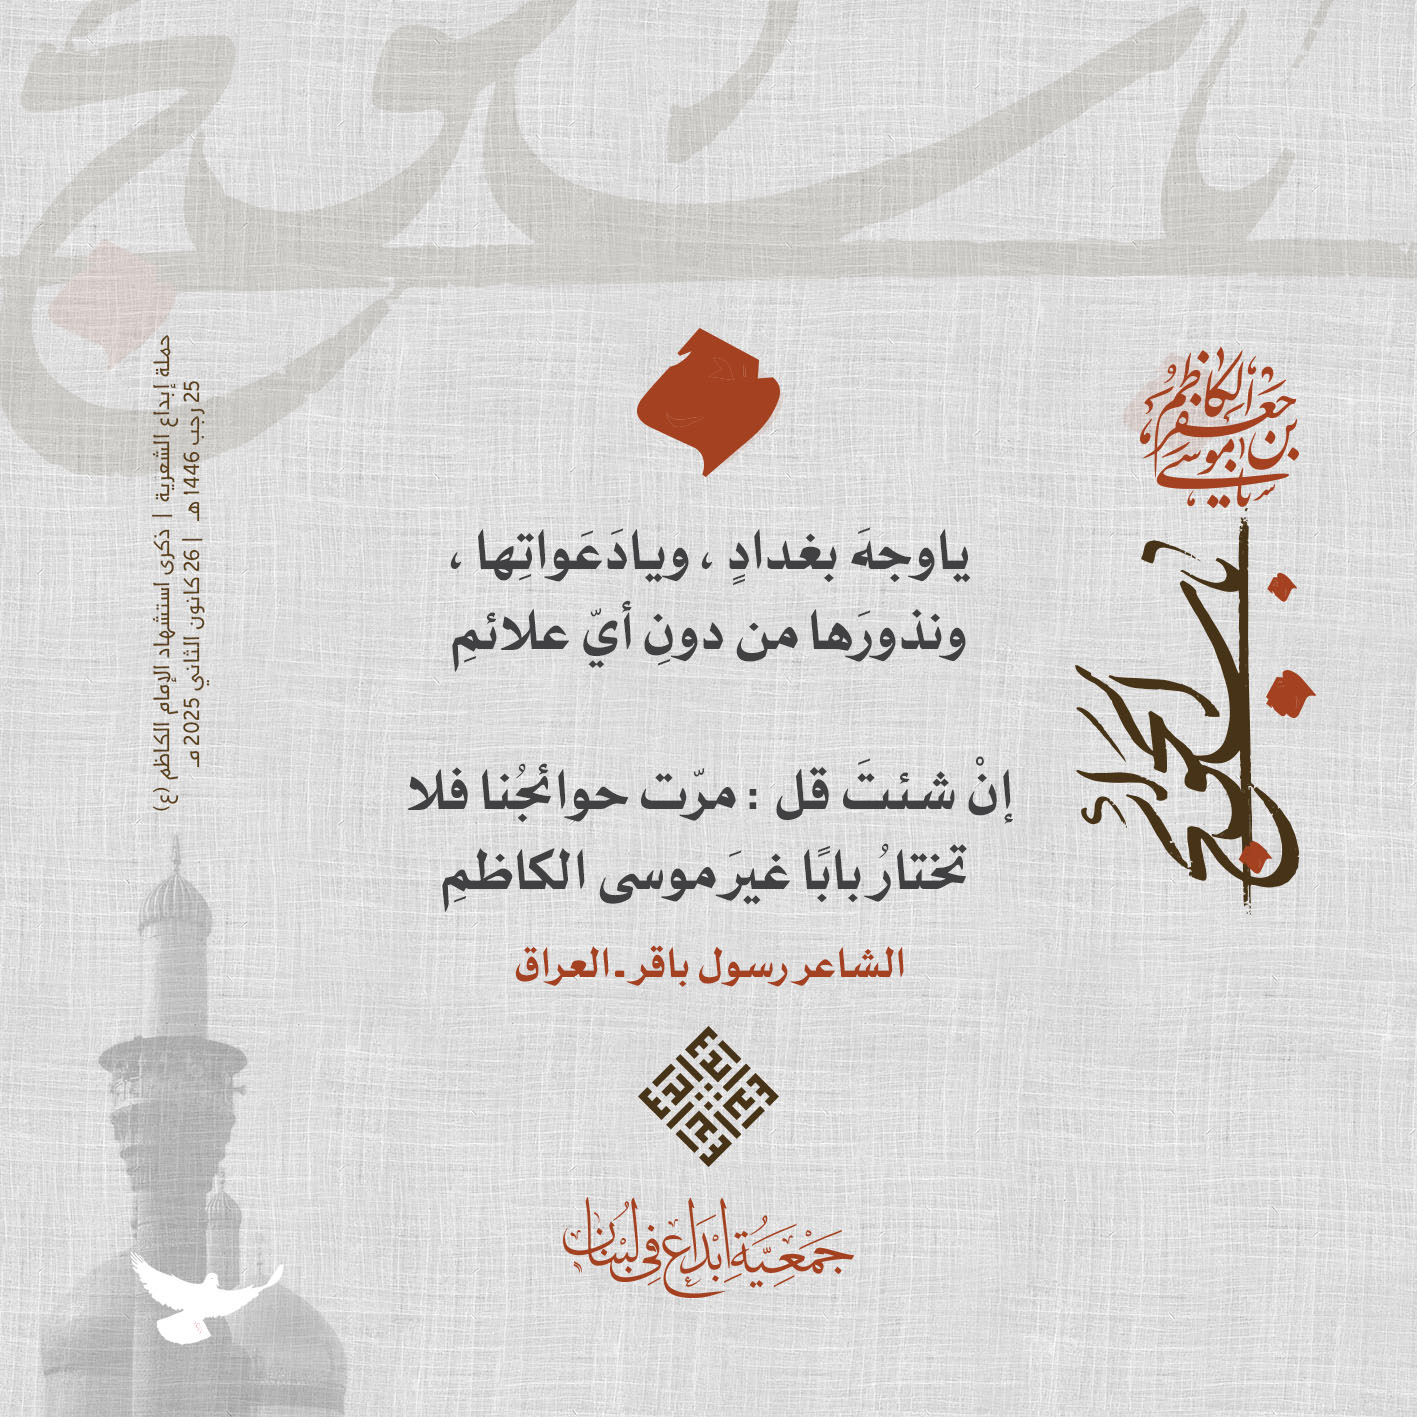 يا موسى بن جعفر الكاظم
باب الحوائج
ياوجهَ بغدادٍ ، ويادَعَواتِها ،
ونذورَها من دونِ أيّ علائمِ
إنْ شئتَ قل : مرّت حوائجُنا فلا
تختارُ بابًا غيرَ موسى الكاظمِ
الشاعر رسول باقر ـ العراق
جَمْعِيَّةُ إِبْدَاع فِي لُبْنَان
حملة إبداع الشعرية | ذكرى استشهاد الإمام الكاظم (ع)
25 رجب 1446 هـ | 26 كانون الثاني 2025 مـ